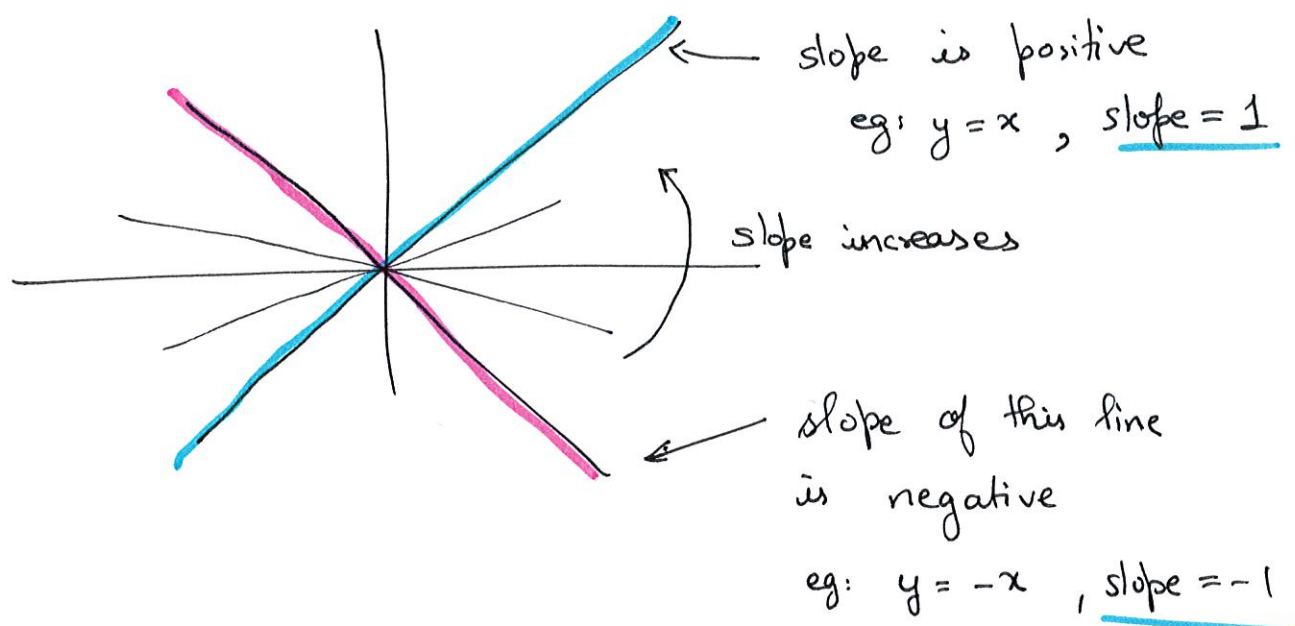 slope is positive
eg: y = x , slope = 1
slope increases
slope of this line
is negative
eg: y = -x , slope = -1